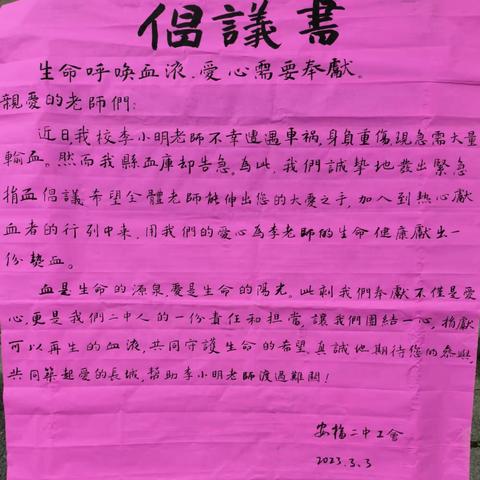 倡議書
生命呼喚血液，愛心需要奉獻。
親愛的老師們：
近日，我校李小明老師不幸遭遇車禍，身負重傷，現急需大量
輸血。然而我縣血庫却告急，為此，我們誠摯地發出緊急
捐血倡議，希望全體老師能伸出您的大愛之手，加入到熱心獻
血者的行列中來，用我們的愛心為李老師的生命健康獻出一
份熱血。
血是生命的源泉，愛是生命的陽光。此刻我們奉獻不僅是愛
心，更是我們二中人的一份責任和担當，讓我們團結一心，捐獻
可以再生的血液，共同守護生命的希望，真誠地期待您的參與，
共同築起愛的長城，幫助李小明老師渡過難關！
安福二中工會
2023.3.3